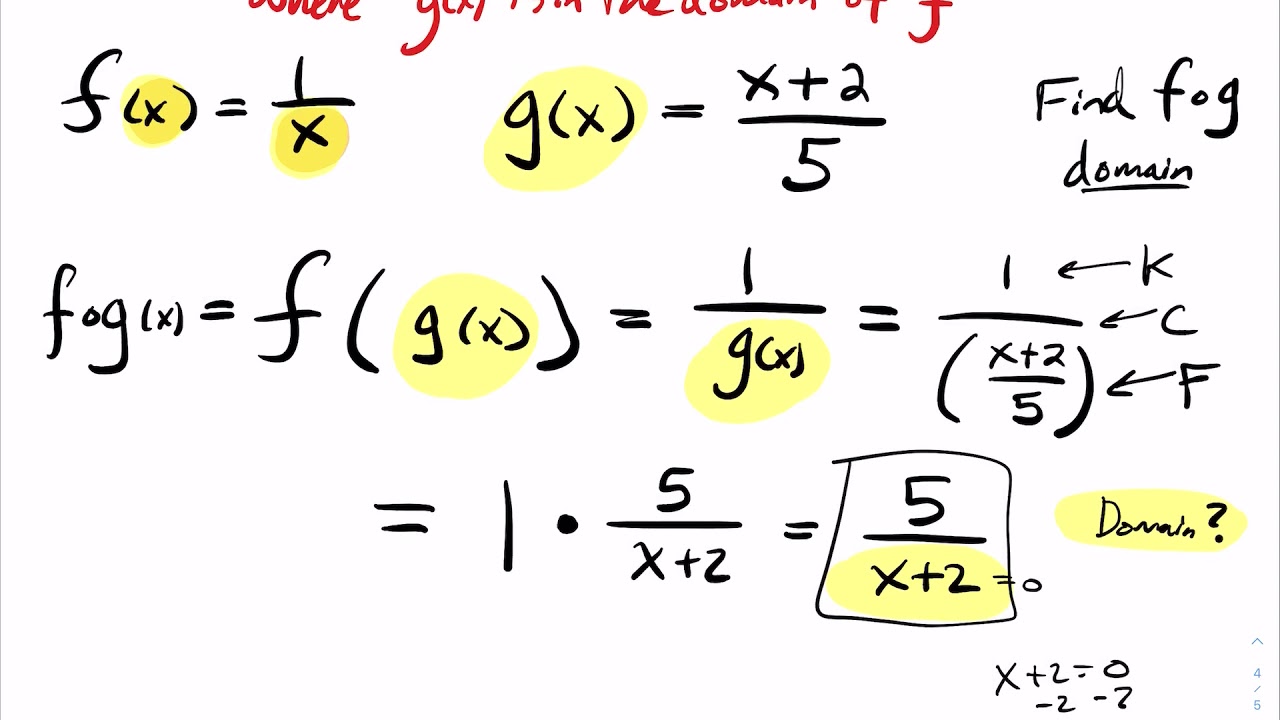 where g(x) is in the domain of f
f(x) = 1/x g(x) = x+2/5 Find fog
domain
fog(x) = f(g(x)) = 1/g(x) = 1/(x+2/5) ← K ← C ← F
= 1 • 5/x+2 = 5/x+2 = 0 Domain?
x+2=0
-2 -2
4/5